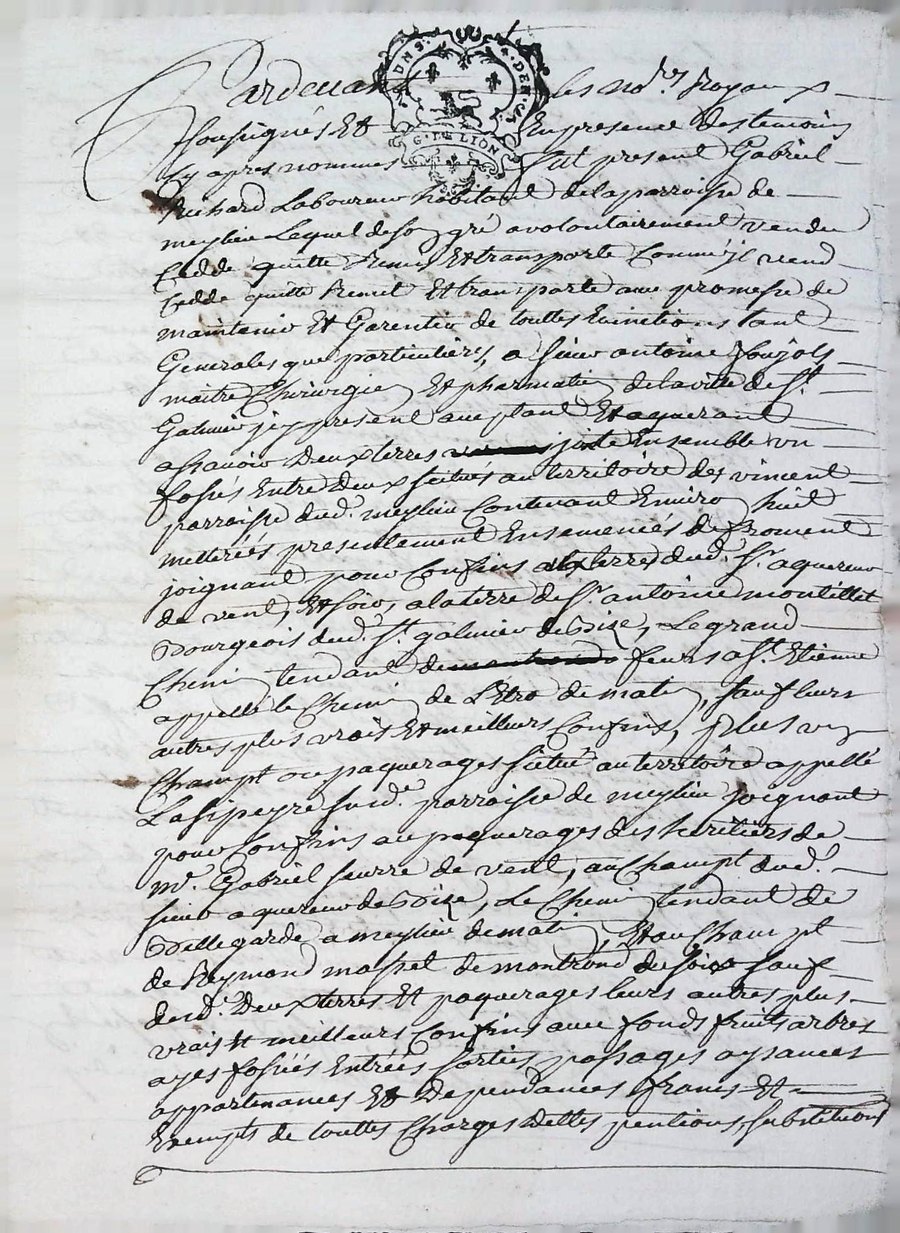 UN S. DEN. G. DE LION
Pardevant les no.res Royaux
soussignés Et En presence des temoins
cy apres nommés fut present Gabriel
Richard Laboureur habitant de la parroisse de
meylieu Lequel de son gré a volontairement vendu
Cedde quitte Remet Et transporte Comme jl vend
Cedde quitte Remet Et transporte avec promesse de
maintenir Et Garentir de touttes Evinctions tant
Generales que particulieres, a sieur antoine
maitre Chirurgien Et pharmatien de la ville de St
Galmier jcy present acceptant Et aquerant
a sçavoir Deux terres joste Ensemble un
fossés Entre Deux scitués au territoire de vincent
parroisse dud. meylieu Contenant Environ huit
metterées presentement Ensemencés de froment
joignant pour Confins a la terre dud. Sr. aquereur
de vent, Et soir, a la terre de Sr. antoine montillet
Bourgeois dud. St. galmier de Bize, Le grand
Chemin tendant de feurs a St. Etienne
appellé le Chemin de L'Etro de matin, sauf leurs
autres plus vrais Et meilleurs Confins, plus un
Champt ou paquerages scitué au territoire appellé
Lasipeyre sud.e parroisse de meylieu joignant
pour Confins au paquerages des heritiers de
mr. Gabriel seurre de vent, au Champt dud.
sieur aquereur de Bize, Le Chemin tendant de
Bellegarde a meylieu de matin, Et au Champt
de Reymond massel de montrond de soir sauf
desd. Deux terres Et paquerages leurs autres plus
vrais Et meilleurs Confins avec fonds fruits arbres
ayes fossés Entrées sorties passages aysances
appartenances Et Dependances francs Et
Exempts de touttes Charges Dettes pentions substitutions